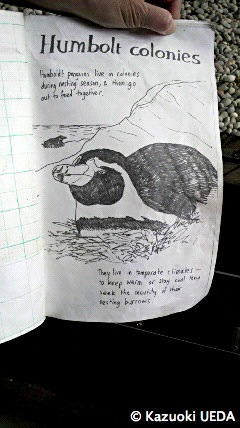 Humbolt colonies
Humboldt penguins live in colonies
during nesting season, & then go
out to feed together.
They live in temperate climates —
to keep warm or stay cool they
seek the security of their
nesting burrows.
© Kazuoki UEDA